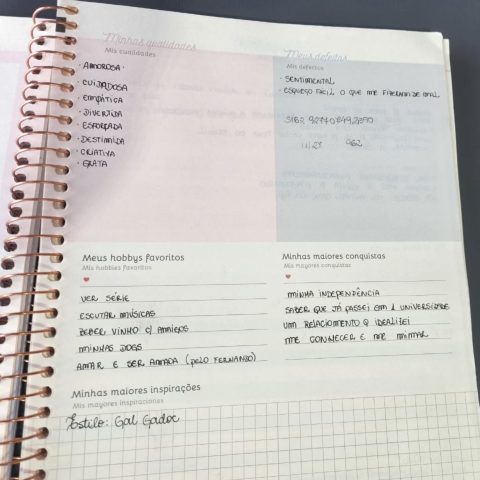 Minhas qualidades
Mis cualidades
· AMOROSA ·
CUIDADOSA
· EMPÁTICA
· DIVERTIDA
· ESFORÇADA
· DESTIMIDA
· CRIATIVA
· GRATA
Meus defeitos
Mis defectos
· SENTIMENTAL
· ESQUEÇO FÁCIL O QUE ME FIZERAM DE MAL
Meus hobbys favoritos
Mis hobbies favoritos
VER SÉRIE
ESCUTAR MÚSICAS
BEBER VINHO C/ AMIGOS
MINHAS DOGS
AMAR E SER AMADA (PELO FERNANDO)
Minhas maiores conquistas
Mis mayores conquistas
MINHA INDEPENDÊNCIA
SABER QUE JÁ PASSEI EM 1 UNIVERSIDADE
UM RELACIOMENTO Q IDEALIZEI
ME CONHECER E ME MIMAR
Minhas maiores inspirações
Mis mayores inspiraciones
Estilo: Gal Gadot